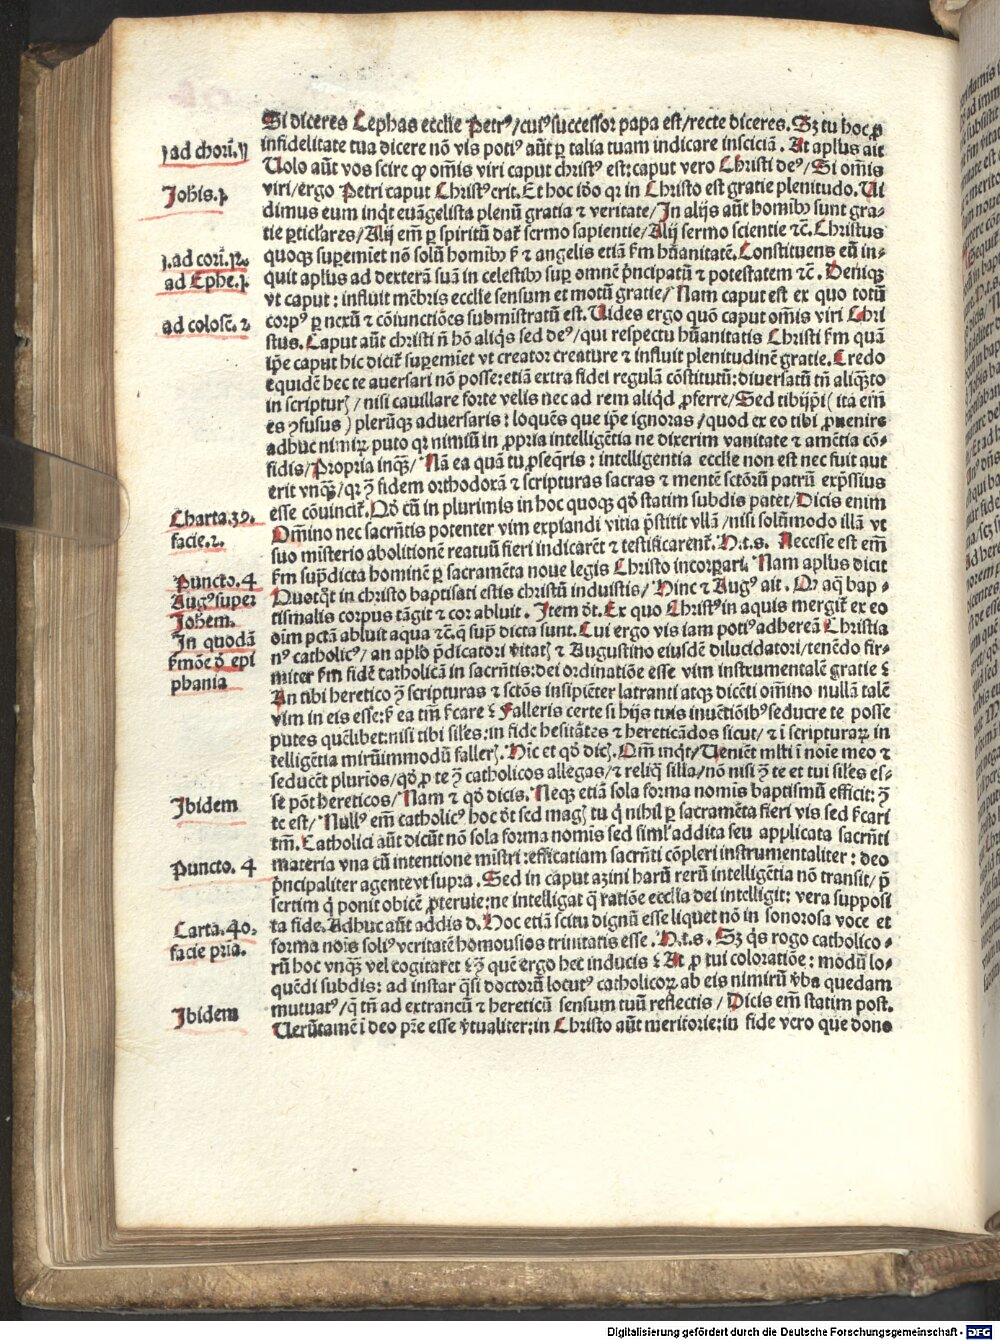 Si diceres Cephas ecclie Petr⁹/cui⁹ successor papa est/recte diceres. Sꝫ tu hoc ꝓ
infidelitate tua dicere nō vis poti⁹ aūt ꝑ talia tuam indicare insciciā. At aplus ait
Uolo aūt vos scire ꝙ om̄is viri caput christ⁹ est: caput vero Christi de⁹/Si om̄is
viri/ergo Petri caput Christ⁹ erit. Et hoc iō qꝛ in Christo est gratie plenitudo. Ui
dimus eum inqt euāgelista plenū gratia ⁊ veritate/In alijs aūt hominibꝫ sunt gra-
tie ꝑticlares/Alij em̄ ꝑ spiritū dat̄ sermo sapientie/Alij sermo scientie ⁊c̄. Christus
quoqꝫ supemiet nō solū hominibꝫ ẜ ⁊ angelis etiā ẜm hūanitatē. Constituens eū in-
quit aplus ad dexterā suā in celestibꝫ suꝑ omnē pͥncipatū ⁊ potestatem ⁊c̄. Deniqꝫ
vt caput: influit mēbris ecclie sensum et motū gratie/ Nam caput est ex quo totū
corp⁹ ꝑ nexū ⁊ cōiunctiōes submistratū est. Uides ergo quō caput om̄is viri Chri
stus. Caput aūt christi n̄ hō aliqͥs sed de⁹/qui respectu hūanitatis Christi ẜm quā
ip̄e caput hic dicit̄ supemiet vt creator creature ⁊ influit plenitudinē gratie. Credo
equidē hec te auersari nō posse: etiā extra fidei regulā cōstitutū: diuersatū tn̄ aliqͣto
in scripturꝭ/nisi cauillare forte velis nec ad rem aliqͥd ꝓferre/Sed tibijp̄i( ita em̄
es ꝯfusus) plerūqꝫ aduersaris: loquēs que ip̄e ignoras/quod ex eo tibi ꝓuenire
adhuc nimiꝝ puto qꝛ nimiū in ꝓpria intelligētia ne dixerim vanitate ⁊ amētia cō-
fidis/Propria inqͣꝫ/ Nā ea quā tu ꝓseqͥris: intelligentia ecclie non est nec fuit aut
erit vnqͣꝫ/qꝛ ꝯ̄ fidem orthodoxā ⁊ scripturas sacras ⁊ mentē sctōrū patrū expͥssius
esse cōuincit̄. Qō cū in plurimis in hoc quoqꝫ qō statim subdis patet/Dicis enim
Om̄ino nec sacrn̄tis potenter vim expiandi vitia pͥstitit vllā/nisi solūmodo illā vt
suo misterio abolitionē reatuū fieri indicarēt ⁊ testificarent̄. H.t.s. Necesse est em̄
ẜm supͣdicta hominē ꝑ sacramēta noue legis Christo incorpari. Nam aplus dicit
Quotqͦt in christo baptisati estis christū induistis/ Hinc ⁊ Aug⁹ ait. Qr aqꝫ bap-
tismalis corpus tāgit ⁊ cor abluit. Item ōt. Ex quo Christ⁹ in aquis mergit̄ ex eo
oīm pctā abluit aqua ⁊c̄. q̄ supͣ dicta sunt. Cui ergo vis iam poti⁹ adhereā Christia
n⁹ catholic⁹/an aplo pͥdicatori vͥitatꝭ ⁊ Augustino eiusdē dilucidatori/tenēdo fir-
miter ẜm fidē catholicā in sacrn̄tis: dei ordinatiōe esse vim instrumentalē gratie
An tibi heretico ꝯ̄ scripturas ⁊ sctōs insipiēter latranti atqꝫ dicēti om̄ino nullā talē
vim in eis esse: ẜ ea tm̄ ẜcare Falleris certe si hijs tuis inuētiōibꝰ seducre te posse
putes quēlibet: nisi tibi siles: in fide hesitātes ⁊ hereticādos sicut/⁊ ī scripturaꝝ in
telligētia mirūimmodū fallerꝭ. Hīc et qō dicꝭ. Om̄ inqt/Ueniēt mlti ī noīe meo ⁊
seducēt plurios/qō ꝓ te ꝯ̄ catholicos allegas/⁊ reliqͣ silla/nō nisi ꝯ̄ te et tui siles es-
se pōnt hereticos/Nam ⁊ qō dicis. Neqꝫ etiā sola forma nomis baptismū efficit: ꝯ̄
te est/ Null⁹ em̄ catholic⁹ hoc ōt sed magꝭ tu qͥ nihil ꝑ sacramēta fieri vis sed ẜcari
tm̄. Catholici aūt dicūt nō sola forma nomis sed simᷣl addita seu applicata sacrn̄ti
materia vna cū intentione mistri: efficatiam sacrn̄ti cōpleri instrumentaliter: deo
pͥncipaliter agente vt supra. Sed in caput azini harū rerū intelligētia nō transit/pͥ
sertim qͥ ponit obicē ꝓteruie: ne intelligat q̄ ratiōe ecclia dei intelligit: vera supposi
ta fide. Adhuc aūt addis d. Hoc etiā scitu dignū esse liquet nō in sonorosa voce et
forma nōis soli⁹ veritatē homousios trinitatis esse. H.t.s. Sꝫ qͦs rogo catholico-
rū hoc vnqꝫ vel cogitaret ꝯ̄ quē ergo hec inducis At ꝓ tui coloratiōe: modū lo-
quēdi subdis: ad instar qͣsi doctorū locut⁹ catholicoꝝ ab eis nimirū v̓ba quedam
mutuat⁹/qͣ tn̄ ad extraneū ⁊ hereticū sensum tuū reflectis/ Dicis em̄ statim post.
Uerūtamē ī deo pr̄e esse vͥtualiter: in Christo aūt meritorie: in fide vero que dono
ꝫad chorī. ꝟ
Johis. ꝓ
ꝫ. ad corī. 12.
ad Ephe. ꝫ.
ad colosc̄. 2
Charta. 39.
facie. 2.
Puncto. 4
Aug⁹ super
Johem.
In quodā
ẜmōe ō epi
phania
Ibidem
Puncto. 4
Carta. 40.
facie pria.
Ibidem
Digitalisierung gefördert durch die Deutsche Forschungsgemeinschaft - DFG